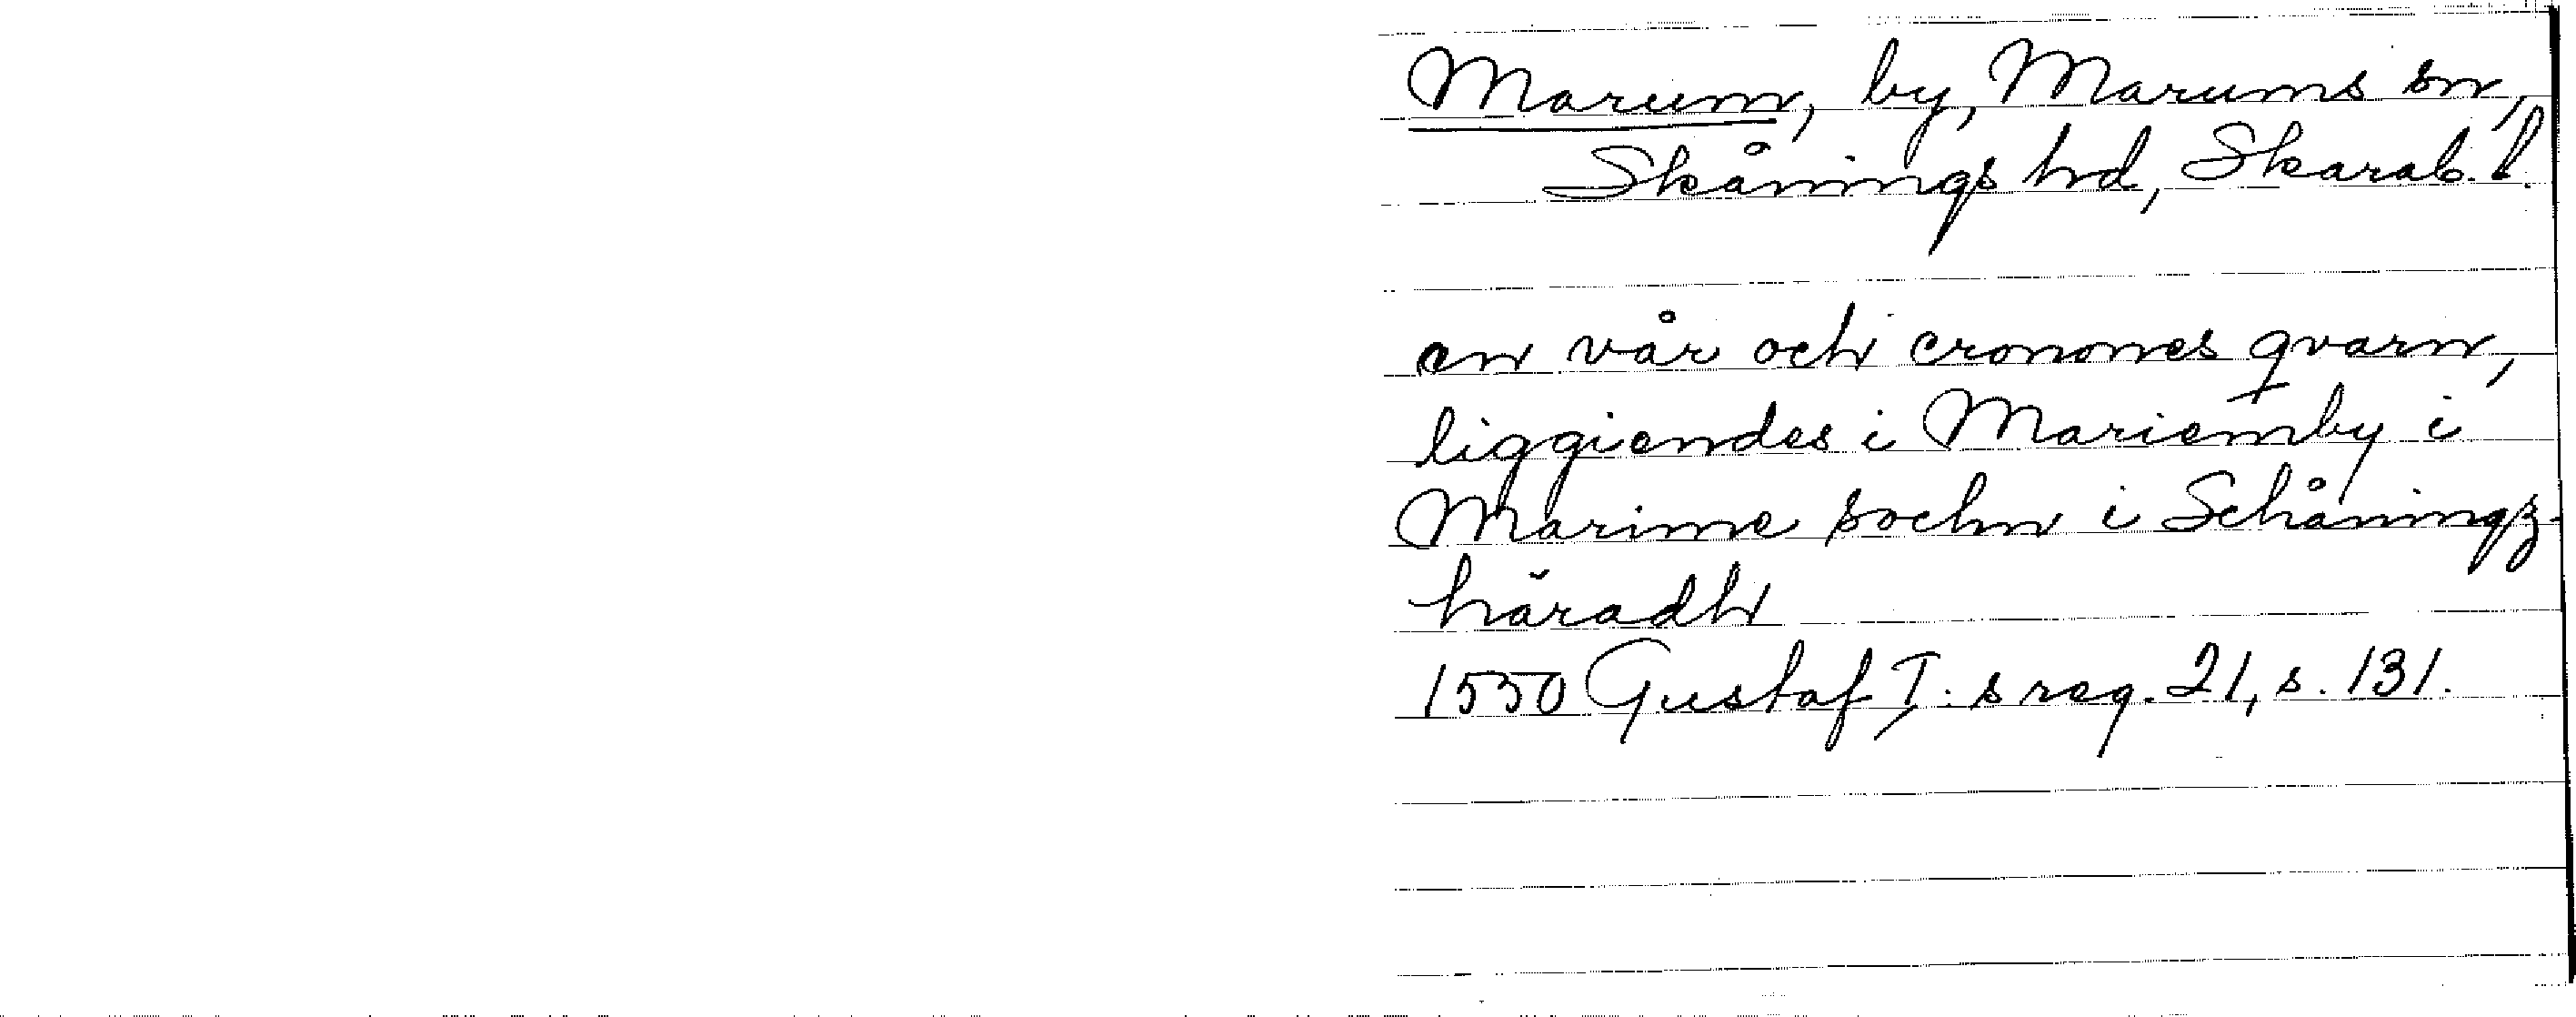 Marum, by, Marums sn,
Skånings hd, Skarab. l.
en vår och cronones qvarn,
liggiendes i Mariemby i
Marime sochn i Schåningz-
häradh
1550 Gustaf I:s reg. 21, s. 131.